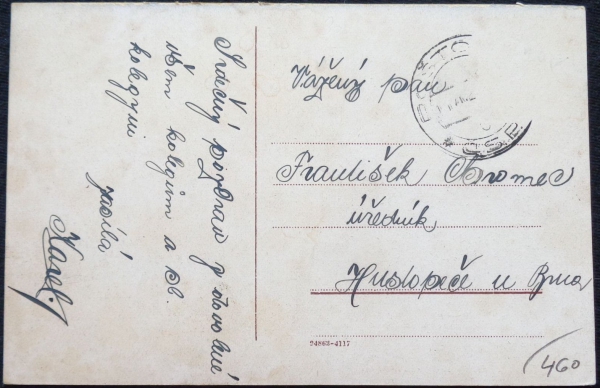 Srdečný pozdrav z dovolené
všem kolegům a sl.
kolegyni
zasílá
Karel.
Vážený pan
František Bromec
úředník
Hustopeče u Brna
94863-4117
460